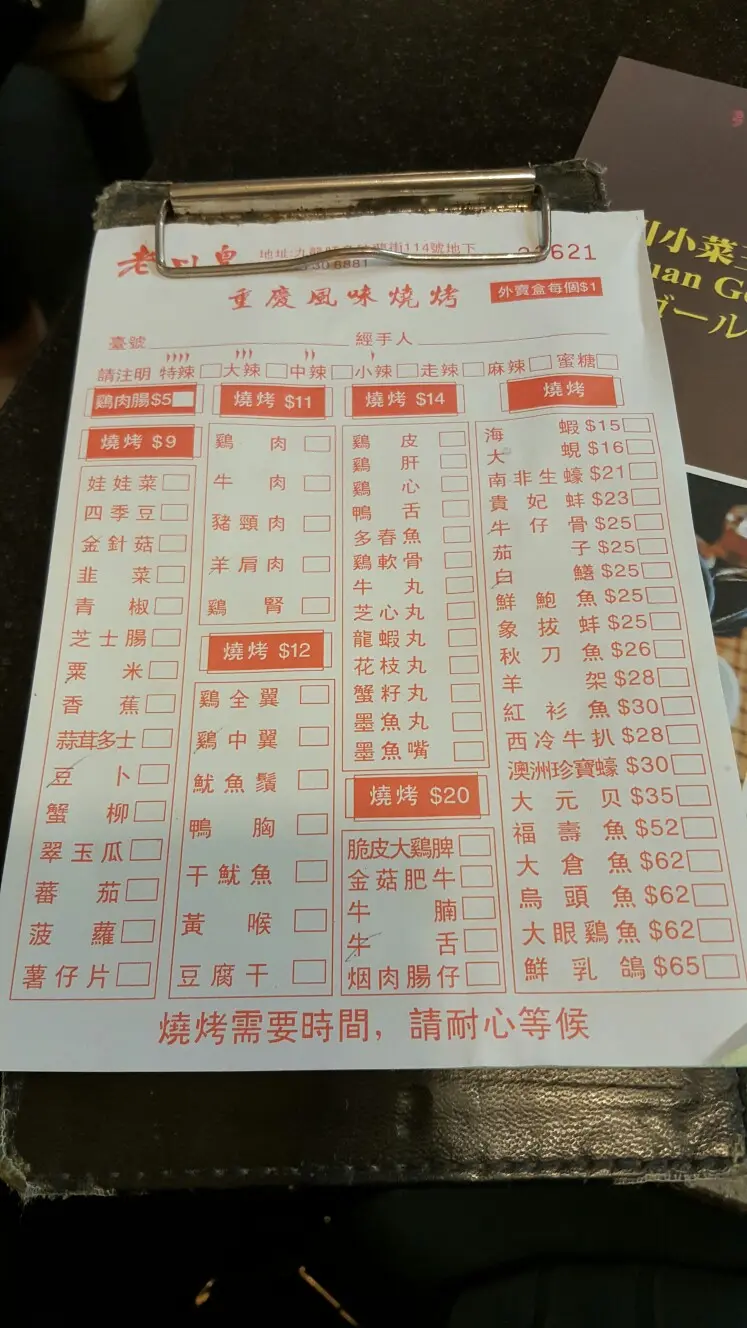 老川皇
街114號地下
8881
621
重慶風味燒烤
外賣盒每個$1
臺號 經手人
請注明 特辣 大辣 中辣 小辣 走辣 麻辣 蜜糖
鷄肉腸$5
燒烤 $9
娃娃菜
四季豆
金針菇
韭菜
青椒
芝士腸
粟米
香蕉
蒜茸多士
豆卜
蟹柳
翠玉瓜
蕃茄
菠蘿
薯仔片
燒烤 $11
鷄肉
牛肉
豬頸肉
羊肩肉
鷄腎
燒烤 $12
鷄全翼
鷄中翼
魷魚鬚
鴨胸
干魷魚
黃喉
豆腐干
燒烤 $14
鷄皮
鷄肝
鷄心
鴨舌
多春魚
鷄軟骨
牛丸
芝心丸
龍蝦丸
花枝丸
蟹籽丸
墨魚丸
墨魚嘴
燒烤 $20
脆皮大鷄脾
金菇肥牛
牛腩
牛舌
烟肉腸仔
燒烤
海蝦 $15
大蜆 $16
南非生蠔 $21
貴妃蚌 $23
牛仔骨 $25
茄子 $25
白鱔 $25
鮮鮑魚 $25
象拔蚌 $25
秋刀魚 $26
羊架 $28
紅衫魚 $30
西冷牛扒 $28
澳洲珍寶蠔 $30
大元贝 $35
福壽魚 $52
大倉魚 $62
烏頭魚 $62
大眼鷄魚 $62
鮮乳鴿 $65
燒烤需要時間，請耐心等候
川小菜
uan G
ゴール